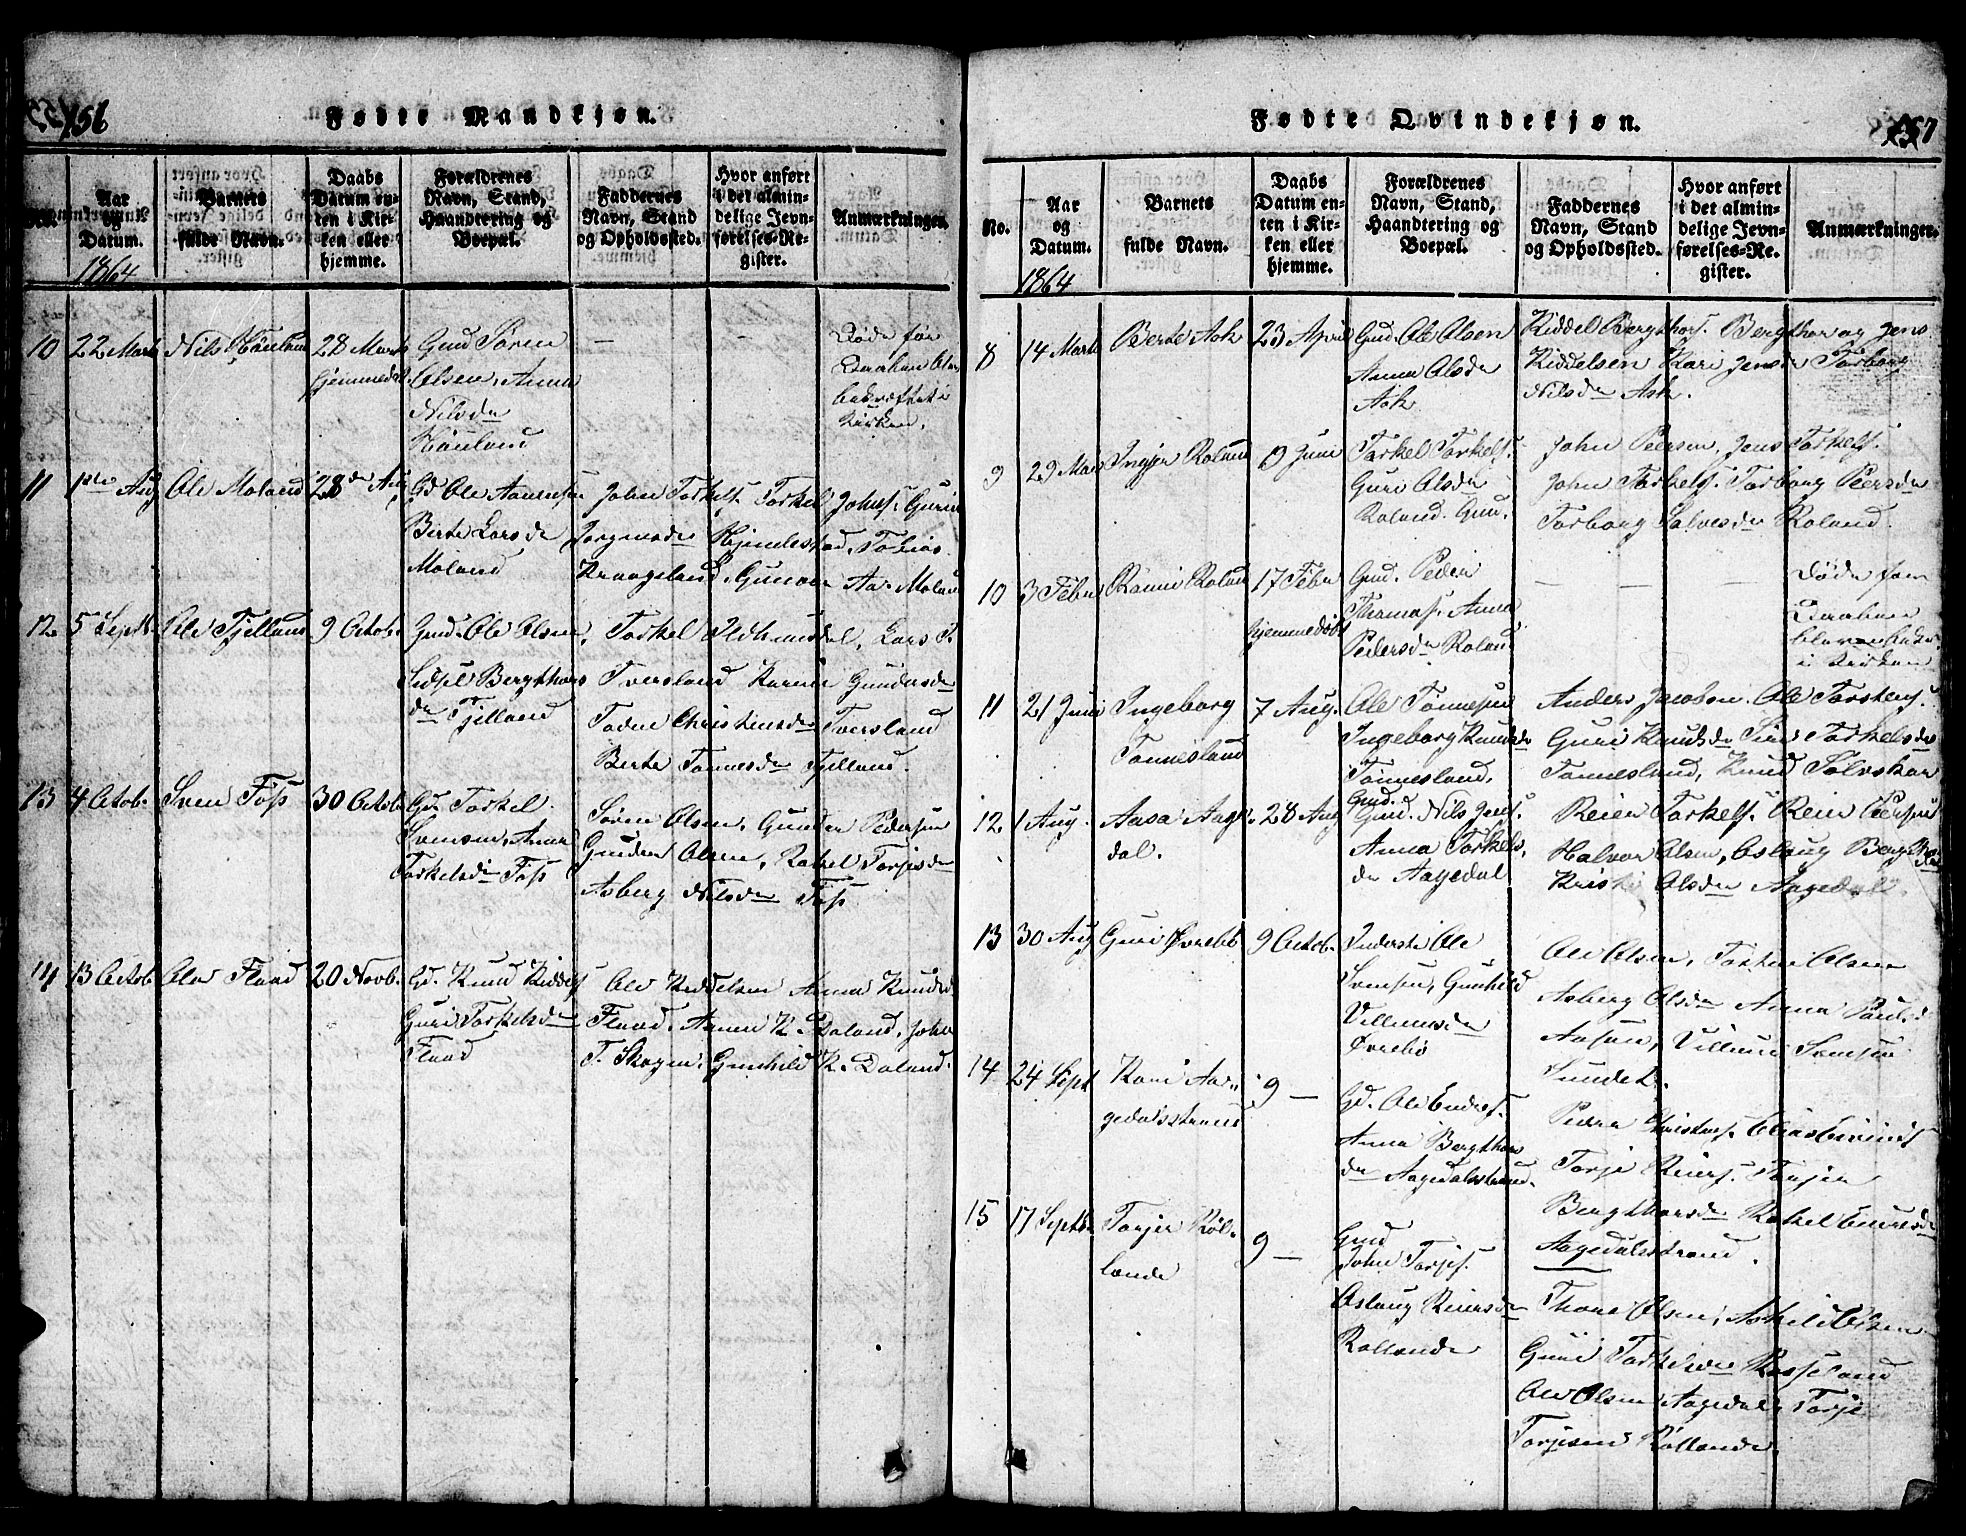 156
Fødte Mandkjøn.
No.
Aar og Datum.
Barnets fulde Navn.
Daabs Datum enten i Kirken eller hjemme.
Forældrenes Navn, Stand, Haandtering og Boepæl.
Faddernes Navn, Stand og Opholdssted.
Hvor anført i det almindelige Jevnførelses-Register.
Anmærkninger.
1864
10 22 Marts Nils Hauland 28 Marts hjemmedøbt
Gmd Søren
Olsen, Anna
Nilsdr
Hauland
Døde før
Kirken.
11 1ste Aug Ole Moland 28de Aug
Gd Ole Aanensen
Berte Larsdr
Moland
John Torkels. Torkel Johns. Guri
Jorgensdr Hjemlestad, Tobias
Kraageland, Gunvor Aa. Moland
12. 5 Septb. Ole Fjelland 9 Octob.
Gmd. Ole Olsen,
Sidsel Bergthors
dr Fjelland
Torkel Udhuusdal, Lars T.
Tversland Karen Gundersdr
Todne Christensdr Tversland
Berte Tønnesdr Fjelland.
13 4 Octob. Sven Foss 30 Octob.
Gd. Torkel
Svensen, Anne
Torkelsdr Foss
Søren Olsen, Gunder Pedersen
Gunder Olsen, Rakel Torjesdr
Asberg Nilsdr Foss
14 13 Octob. Olav Flaad 20 Novb.
Gd. Knud Kiddels
Guri Torkelsdr
Flaad
Ole Kiddelsen Anna Knudsd
Flaad, Aanen K. Roland, John
T. Skogen, Gunhild K. Roland.
157
Fødte Qvindekjøn.
No.
Aar og Datum.
Barnets fulde Navn.
Daabs Datum enten i Kirken eller hjemme.
Forældrenes Navn, Stand, Haandtering og Boepæl.
Faddernes Navn, Stand og Opholdssted.
Hvor anført i det almindelige Jevnførelses-Register.
Anmærkninger.
1864
8 14 Marts Berte Ask 23 April
Gmd. Ole Olsen
Anna Olsdr
Ask
Kiddel Bergthors. Bergthor og Jens
Kiddelsen Kari Jensdr Torborg
Nilsdr Ask.
9 29 Mai Ingjer Roland 19 Juni
Torkel Torkels.
Guri Olsdr
Roland. Gmd.
John Peersen, Jens Torkels.
John Torkels. Torborg Peersdr
Torborg Salvesdr Roland.
10 3 Febr Rannei Roland 17 Febr hjemmedøbt
Gmd. Peder
Thomas. Anna
Pedersdr Roland
Døde før
Daaben
i Kirken
11 21 Juni Ingeborg Tønnesland 7 Aug.
Ole Tønnesen
Ingeborg Knudsdr
Tønnesland,
Gmd.
Anders Jacobsen. Ole Torkels.
Guri Knudsdr Siri Torkelsdr
Tønnesland, Knud Solvskar
12 1 Aug. Aasa Aagedal. 28 Aug
Gmd. Nils Jens.
Anna Torkels
dr Aagedal
Reier Torkels. Reier Peersen
Halvor Olsen, Aslaug Bergthors
Kristi Olsdr Aagedal.
13 30 Aug Guri Øvrebø 9 Octob.
Inderste Ole
Svensen, Gunhild
Villumsdr
Øvrebø
Ole Olsen, Torkel Olsen
Asberg Olsdr Anna Paulsd
Aasen, Villum Svensen
Sundet.
14 24 Sept Kari Aagedalsstrand 9 —
Gd. Ole Enders.
Anna Bergthors
dr Aagedalsstrand.
Peder Christens. Elias Eivinds
Torje Reiers. Torjer
Bergthorsdr Rakel Endresdr
Aagedalsstrand.
15 17 Septb. Torjer Røllande 9 —
Gmd
John Torjes.
Aslaug Reiersdr
Rollande
Thore Olsen, Askild Olsen
Guri Torkelsdr Rosseland
Ole Olsen Aagedal, Torje
Torjesen Røllande.